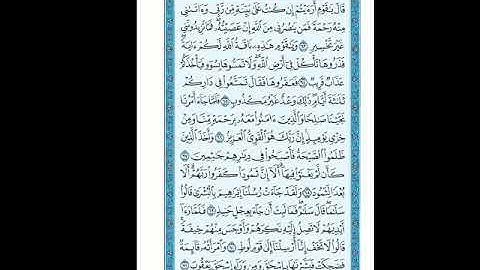 قَالَ يَـٰقَوْمِ أَرَءَيْتُمْ إِن كُنتُ عَلَىٰ بَيِّنَةٍ مِّن رَّبِّى وَءَاتَىٰنِى
مِنْهُ رَحْمَةً فَمَن يَنصُرُنِى مِنَ ٱللَّهِ إِنْ عَصَيْتُهُۥ فَمَا تَزِيدُونَنِى
غَيْرَ تَخْسِيرٍ ٦٣ وَيَـٰقَوْمِ هَـٰذِهِۦ نَاقَةُ ٱللَّهِ لَكُمْ ءَايَةً
فَذَرُوهَا تَأْكُلْ فِىٓ أَرْضِ ٱللَّهِ وَلَا تَمَسُّوهَا بِسُوٓءٍ فَيَأْخُذَكُمْ
عَذَابٌ قَرِيبٌ ٦٤ فَعَقَرُوهَا فَقَالَ تَمَتَّعُوا۟ فِى دَارِكُمْ
ثَلَـٰثَةَ أَيَّامٍ ذَٰلِكَ وَعْدٌ غَيْرُ مَكْذُوبٍ ٦٥ فَلَمَّا جَآءَ أَمْرُنَا
نَجَّيْنَا صَـٰلِحًا وَٱلَّذِينَ ءَامَنُوا۟ مَعَهُۥ بِرَحْمَةٍ مِّنَّا وَمِنْ
خِزْىِ يَوْمِئِذٍ إِنَّ رَبَّكَ هُوَ ٱلْقَوِىُّ ٱلْعَزِيزُ ٦٦ وَأَخَذَ ٱلَّذِينَ
ظَلَمُوا۟ ٱلصَّيْحَةُ فَأَصْبَحُوا۟ فِى دِيَـٰرِهِمْ جَـٰثِمِينَ ٦٧
كَأَن لَّمْ يَغْنَوْا۟ فِيهَآ أَلَآ إِنَّ ثَمُودَا۟ كَفَرُوا۟ رَبَّهُمْ أَلَا
بُعْدًا لِّثَمُودَ ٦٨ وَلَقَدْ جَآءَتْ رُسُلُنَآ إِبْرَٰهِيمَ بِٱلْبُشْرَىٰ قَالُوا۟
سَلَـٰمًا قَالَ سَلَـٰمٌ فَمَا لَبِثَ أَن جَآءَ بِعِجْلٍ حَنِيذٍ ٦٩ فَلَمَّا رَءَآ
أَيْدِيَهُمْ لَا تَصِلُ إِلَيْهِ نَكِرَهُمْ وَأَوْجَسَ مِنْهُمْ خِيفَةً
قَالُوا۟ لَا تَخَفْ إِنَّآ أُرْسِلْنَآ إِلَىٰ قَوْمِ لُوطٍ ٧٠ وَٱمْرَأَتُهُۥ قَآئِمَةٌ
فَضَحِكَتْ فَبَشَّرْنَـٰهَا بِإِسْحَـٰقَ وَمِن وَرَآءِ إِسْحَـٰقَ يَعْقُوبَ ٧١